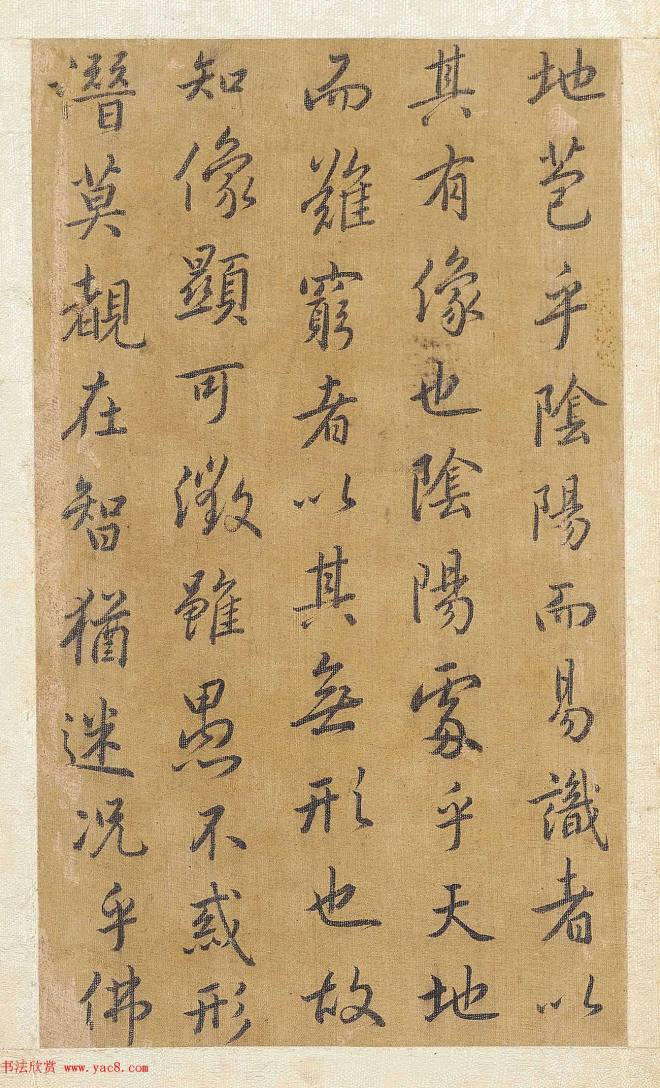 地苞乎陰陽而易識者以
其有像也陰陽處乎天地
而難窮者以其無形也故
知像顯可徵雖愚不惑形
潛莫覩在智猶迷况乎佛
书法欣赏 www.yac8.com